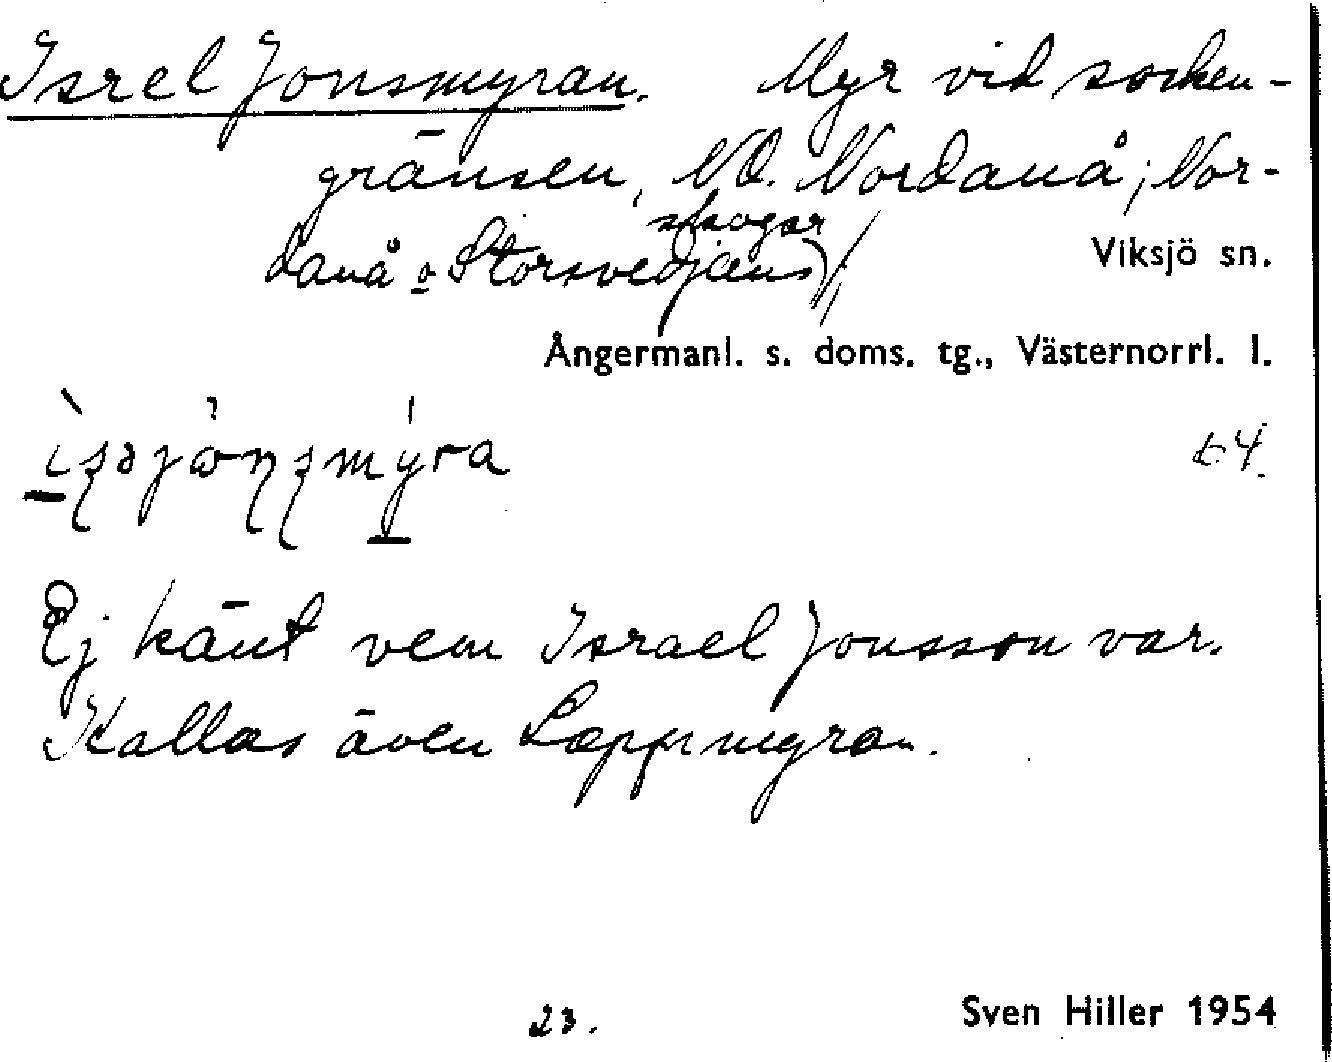 Isrel Jonsmyran. Myr vid socken-
gränsen, NO. Nordanå; Nor-
danå o Storsvedjans skogar
Viksjö sn.
Ångermanl. s. doms. tg., Västernorrl. l.
64.
Ej känt vem Israel Jonsson var.
Kallas även Lappmyran.
23.
Sven Hiller 1954